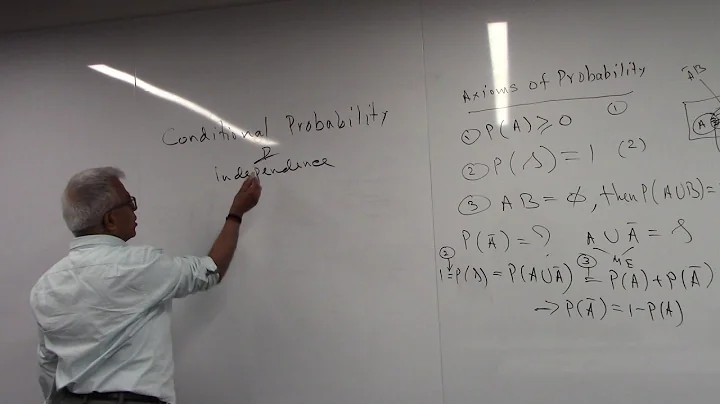 Conditional Probability
independence
Axioms of Probability
① P(A) ≥ 0 ①
② P(S) = 1 (2)
③ AB = ϕ, then P(A∪B) =
P(Ā) = ? A ∪ Ā = S
ME
② ③
1 = P(S) = P(A∪Ā) = P(A) + P(Ā)
→ P(Ā) = 1 - P(A)
ĀB
A